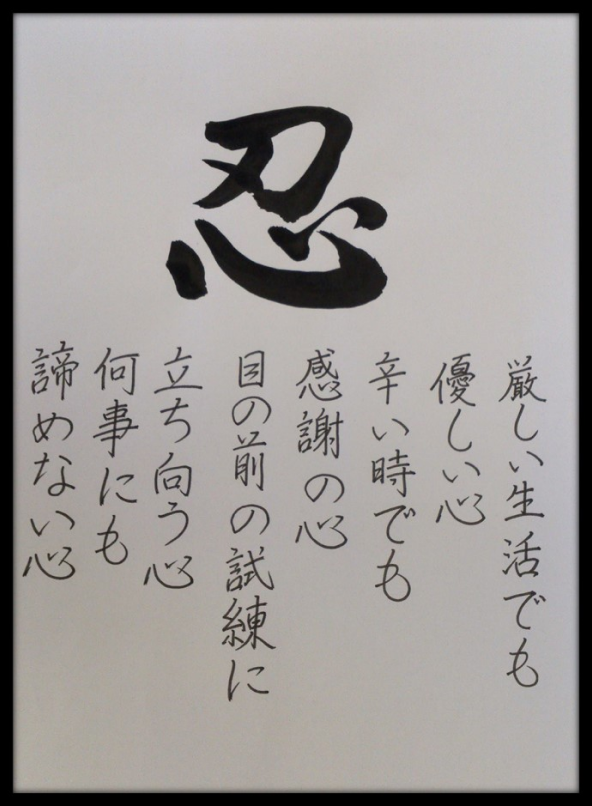 忍
厳しい生活でも
優しい心
辛い時でも
感謝の心
目の前の試練に
立ち向う心
何事にも
諦めない心